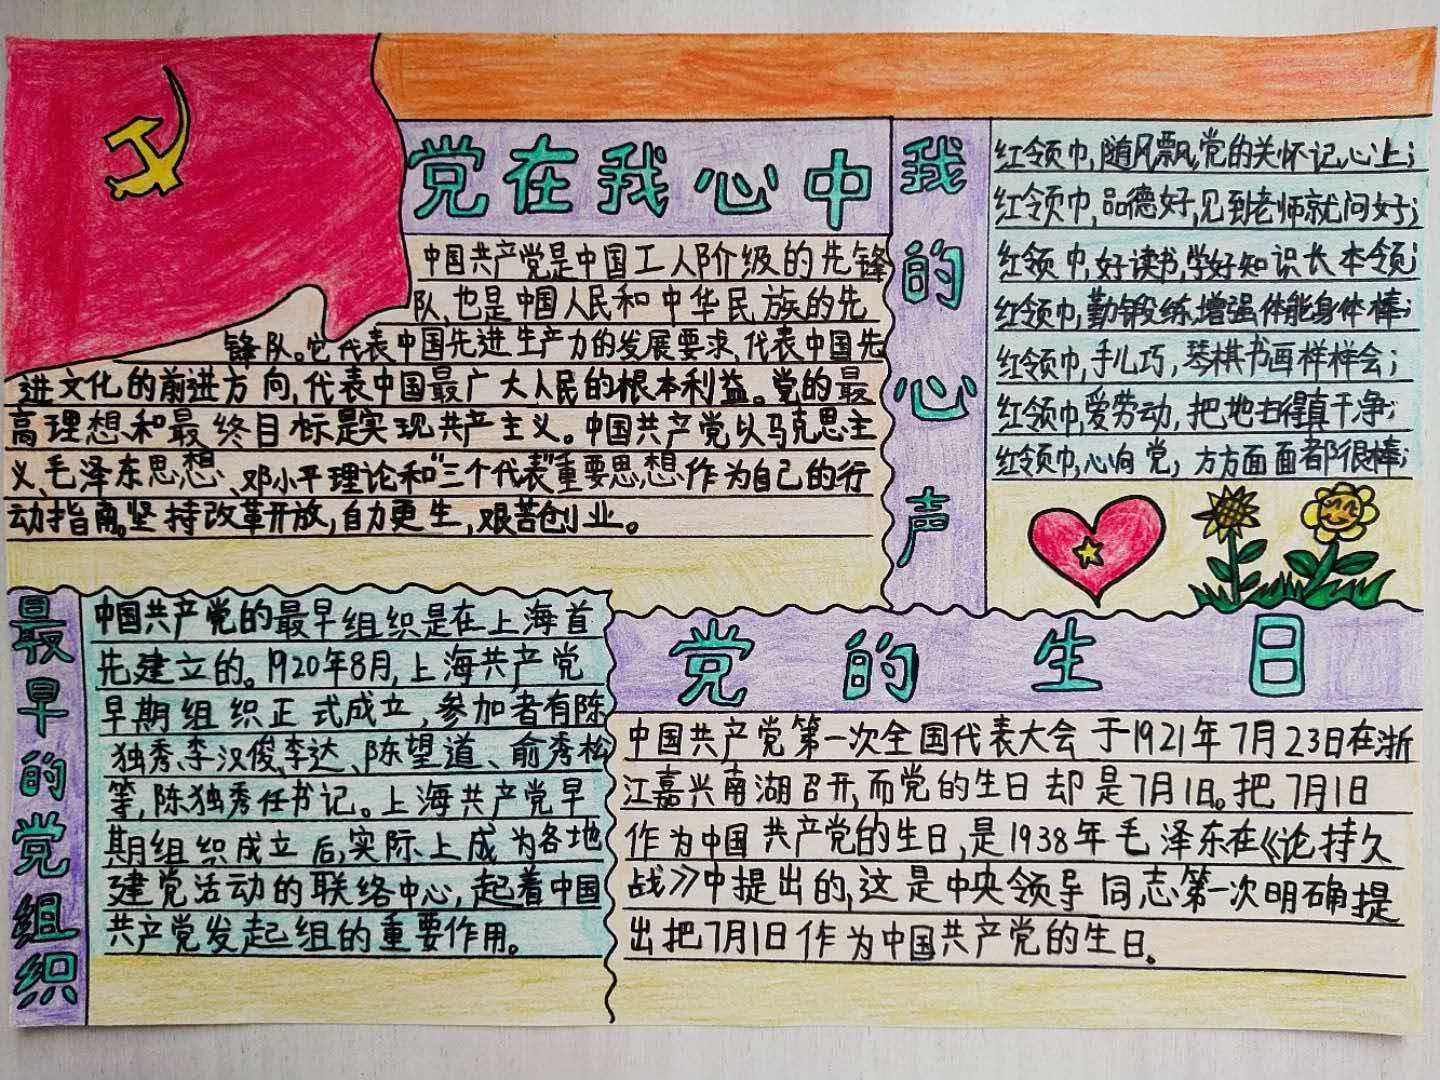 党在我心中
中国共产党是中国工人阶级的先锋
队,也是中国人民和中华民族的先
锋队。它代表中国先进生产力的发展要求,代表中国先
进文化的前进方向,代表中国最广大人民的根本利益。党的最
高理想和最终目标是实现共产主义。中国共产党以马克思主
义、毛泽东思想、邓小平理论和"三个代表"重要思想作为自己的行
动指南。坚持改革开放,自力更生,艰苦创业。
我的心声
红领巾,随风飘,党的关怀记心上;
红领巾,品德好,见到老师就问好;
红领巾,好读书,学好知识长本领;
红领巾,勤锻练,增强体能身体棒;
红领巾,手儿巧,琴棋书画样样会;
红领巾,爱劳动,把地扫得真干净;
红领巾,心向党,方方面面都很棒;
最早的党组织
中国共产党的最早组织是在上海首
先建立的。1920年8月,上海共产党
早期组织正式成立,参加者有陈
独秀、李汉俊、李达、陈望道、俞秀松
等,陈独秀任书记。上海共产党早
期组织成立后,实际上成为各地
建党活动的联络中心,起着中国
共产党发起组的重要作用。
党的生日
中国共产党第一次全国代表大会于1921年7月23日在浙
江嘉兴南湖召开,而党的生日却是7月1日。把7月1日
作为中国共产党的生日,是1938年毛泽东在《论持久
战》中提出的,这是中央领导同志第一次明确提
出把7月1日作为中国共产党的生日。